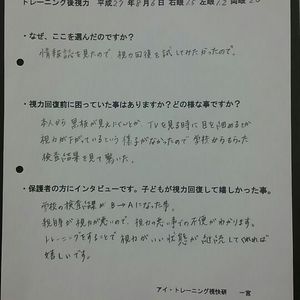 トレーニング後視力 平成27年8月6日 右眼1.5 左眼1.2 両眼2.0
・なぜ、ここを選んだのですか？
情報誌を見たので、視力回復を試してみたかったので。
・視力回復前に困っていた事はありますか？どの様な事ですか？
本人から黒板が見えにくいとか、TVを見る時に目を細めるが
視力が下がっているという様子がなかったので学校からもらった
検査結果を見て驚いた。
・保護者の方にインタビューです。子どもが視力回復して嬉しかった事。
学校の検査結果がB→Aになった事。
親自身が視力が悪いので、視力の悪い事での不便がわかります。
トレーニングをすることで視力がいい状態が継続してくれれば
嬉しいです。
アイ・トレーニング視快研 一宮